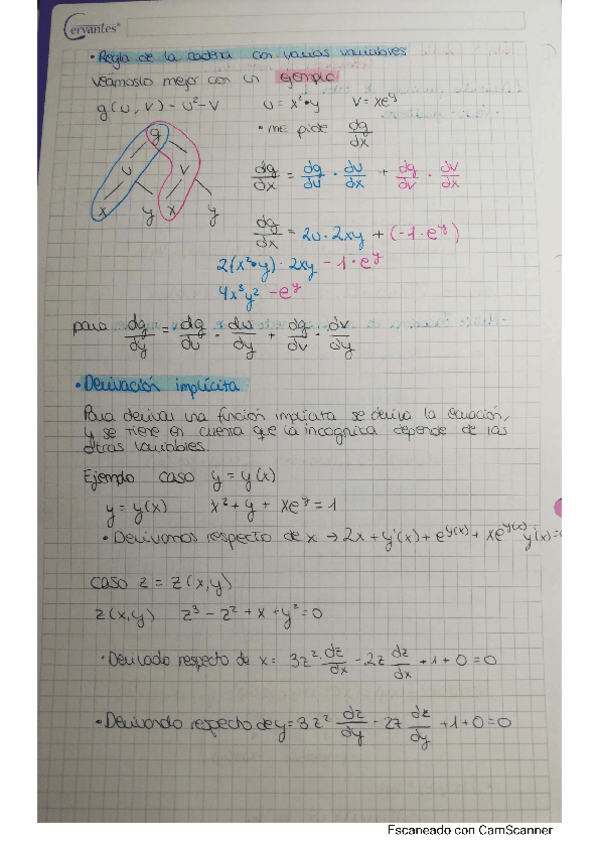 Cervantes
• Regla de la cadena con varias variables
Veámoslo mejor con un ejemplo
g(u, v) = u² - v    u = x²·y    v = xe^y
• me pide dg/dx
g
u v
x y x y
dg/dx = dg/du · du/dx + dg/dv · dv/dx
dg/dx = 2u · 2xy + (-1 · e^y)
2(x²·y) · 2xy - 1 · e^y
4x³y² - e^y
para dg/dy = dg/du · du/dy + dg/dv · dv/dy
• Derivación implícita
Para derivar una función implícita se deriva la ecuación,
y se tiene en cuenta que la incognita depende de las
otras variables.
Ejemplo caso y = y(x)
y = y(x)    x² + y + xe^y = 1
• Derivamos respecto de x → 2x + y'(x) + e^y(x) + xe^y(x) y'(x) =
caso z = z(x,y)
z(x,y)    z³ - z² + x + y² = 0
• Derivado respecto de x = 3z² · dz/dx - 2z dz/dx + 1 + 0 = 0
• Derivando respecto de y = 3z² · dz/dy - 2z dz/dy + 1 + 0 = 0
Escaneado con CamScanner